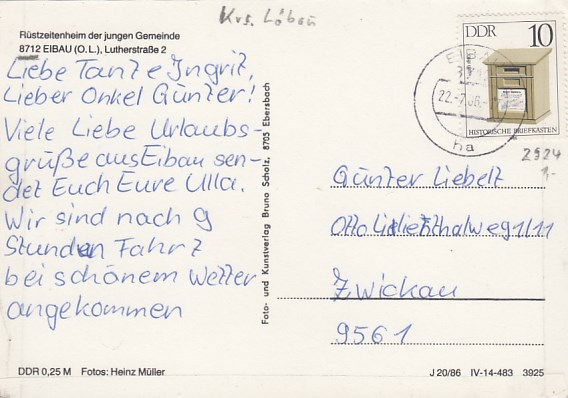 Krs. Löbau
Rüstzeitenheim der jungen Gemeinde
8712 EIBAU (O. L.), Lutherstraße 2
Liebe Tante Ingrit,
Lieber Onkel Günter!
Viele Liebe Urlaubs-
grüße aus Eibau sen-
det Euch Eure Ulla.
Wir sind nach 9
Stunden Fahrt
bei schönem Wetter
angekommen
DDR 0,25 M Fotos: Heinz Müller
Foto- und Kunstverlag Bruno Scholz, 8705 Ebersbach
DDR 10
HISTORISCHE BRIEFKASTEN
ha
2924
1,-
Günter Liebelt
Otto Lilienthalweg 1/11
Zwickau
9561
J 20/86 IV-14-483 3925